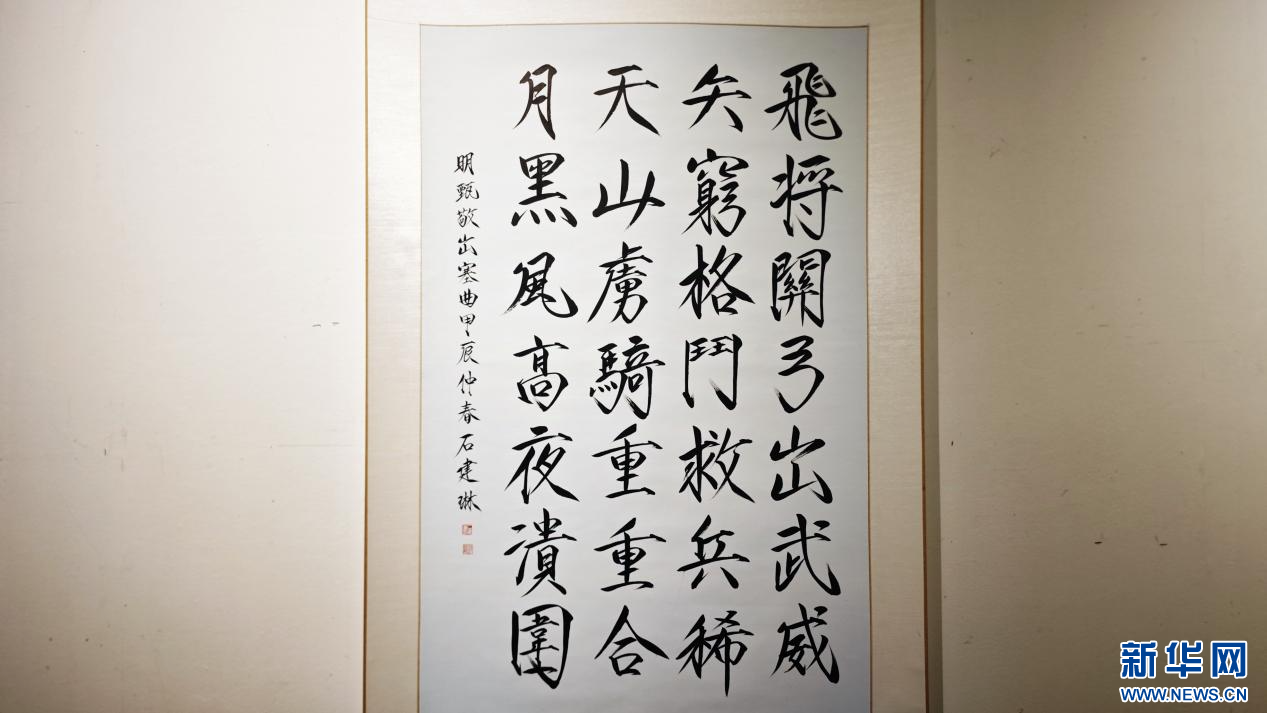 飛將關弓出武威
矢窮格鬥救兵稀
天山虜騎重重合
月黑風高夜潰圍
明甄敬出塞曲甲辰仲春石建琳
新华网
WWW.NEWS.CN